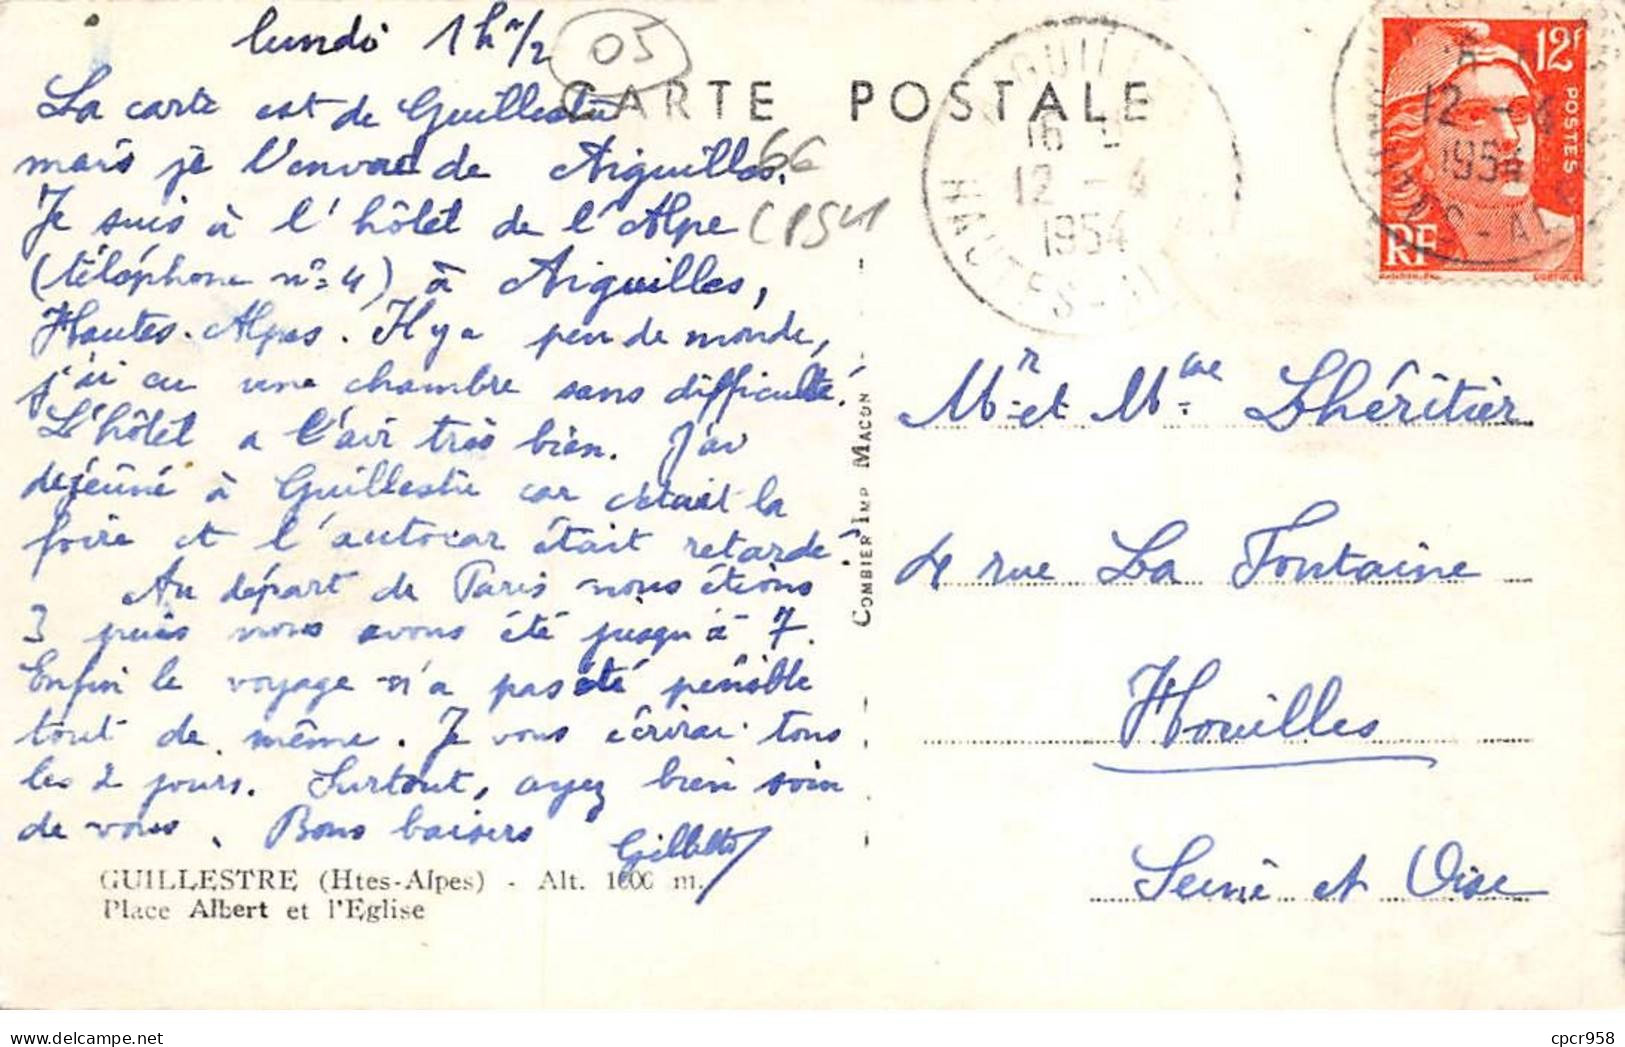 lundi 1h 1/2
05
CARTE POSTALE
La carte est de Guillestre
mais je l'envoie de Aiguilles.
66
Je suis à l'hôtel de l'Alpe
(téléphone n° 4) à Aiguilles,
Hautes-Alpes. Il y a peu de monde,
j'ai eu une chambre sans difficulté.
L'hôtel a l'air très bien. J'ai
déjeûné à Guillestre car c'était la
foire et l'autocar était retardé
Au départ de Paris nous étions
3 puis nous avons été jusqu'à 7.
Enfin le voyage n'a pas été pénible
tout de même. Je vous écrirai tous
les 2 jours. Surtout, ayez bien soin
de vous. Bons baisers
Gillette
GUILLESTRE (Htes-Alpes) - Alt. 1000 m.
Place Albert et l'Eglise
COMBIER IMP MACON
16
12 - 4
1954
HAUTES-ALPES
12F
POSTES
RF
12 - 4
1954
Mr et Mme Lhéritier
4 rue La Fontaine
Houilles
Seine et Oise
cpcr958